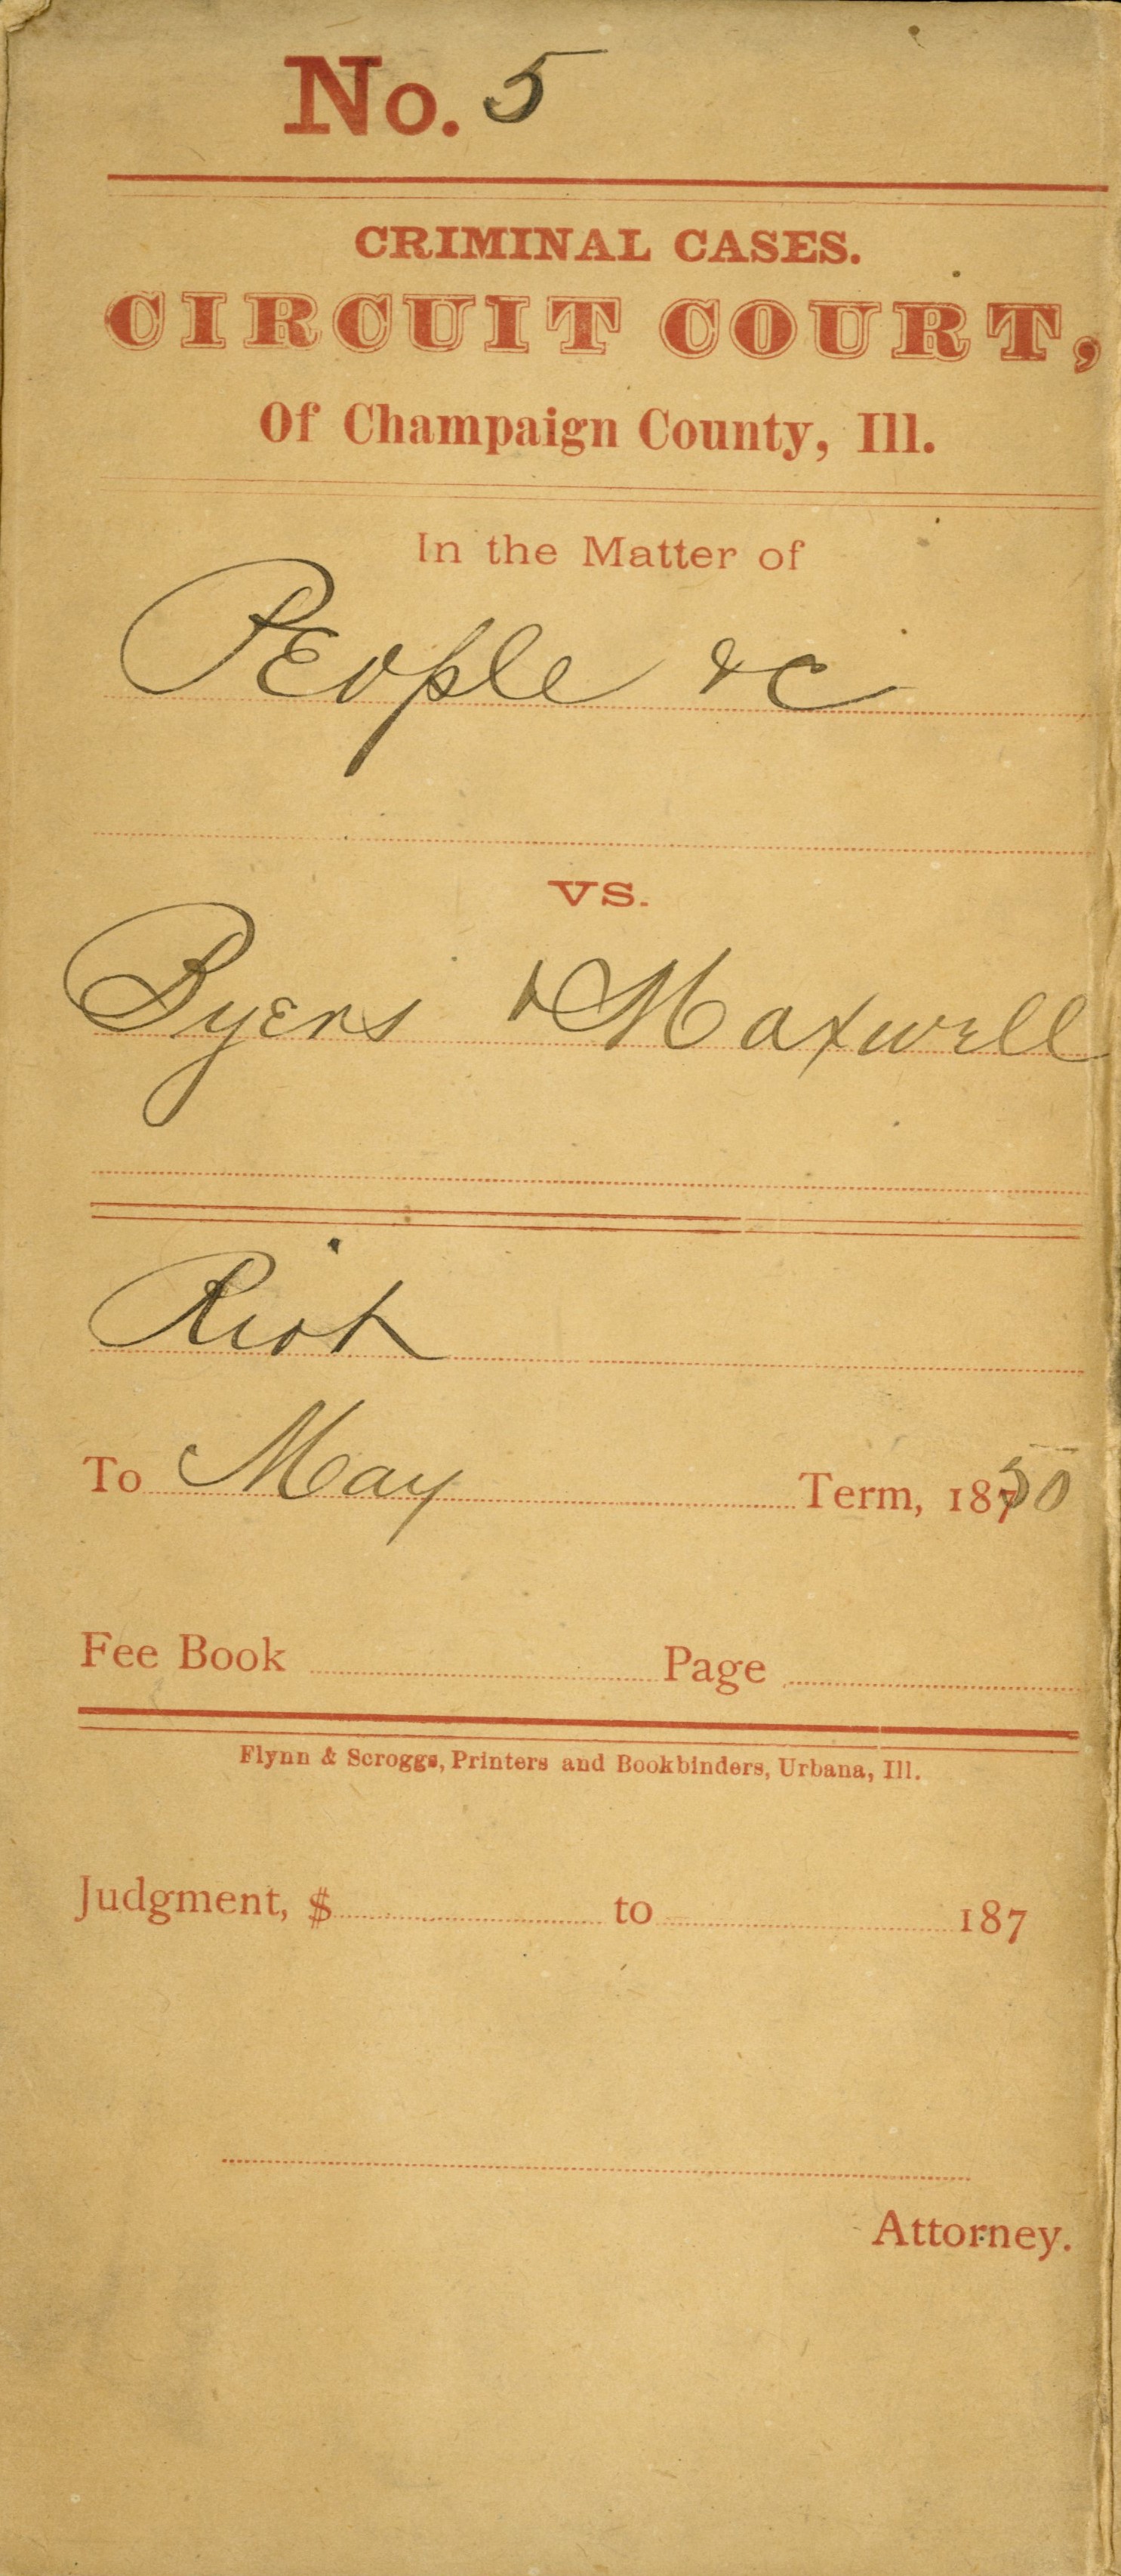 No. 5
CRIMINAL CASES.
CIRCUIT COURT,
Of Champaign County, Ill.
In the Matter of
People &c
vs.
Byers & Maxwell
Riot
To May Term, 1850
Fee Book Page
Flynn & Scroggs, Printers and Bookbinders, Urbana, Ill.
Judgment, $ to 187
Attorney.